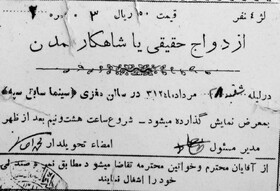 لژ ٤ نفر قیمت ٥٠ ریال ٣ نمره ٢
ازدواج حقیقی یا شاهکار تمدن
درلیله شنبه ٨ مرداد ماه ٣١٢ در سالن مغزی (سینما سابق سپه)
بمعرض نمایش گذارده میشود – شروع ساعت هشت ونیم بعد از ظهر
مدیر مسئول امضاء تحویلدار
از آقایان محترم وخوانین محترمه تقاضا میشود مطابق نمره صندلی
خود را اشغال نمایند